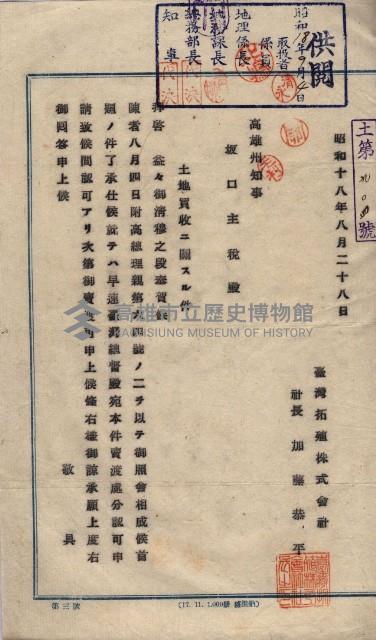 供閲
昭和18年9月4日
取扱者
係員
地理係長
總務課長
總務部長
知事
土第號
昭和十八年八月二十八日
臺灣拓殖株式會社
社長加藤恭平
高雄州知事
坂口主税殿
土地買收ニ關スル件
拜啓益々御清穆之段奉賀候
陳者八月四日附高總理親第號ノ二ヲ以テ御照會相成候首
題ノ件了承仕候就テハ早速臺灣總督殿宛本件賣渡處分認可申
請致候間認可アリ次第御賣渡可申上候條右樣御諒承願上度右
御回答申上候
敬具
高雄市立歷史博物館
KAOHSIUNG MUSEUM OF HISTORY
第三號
(17. 11. 1,000